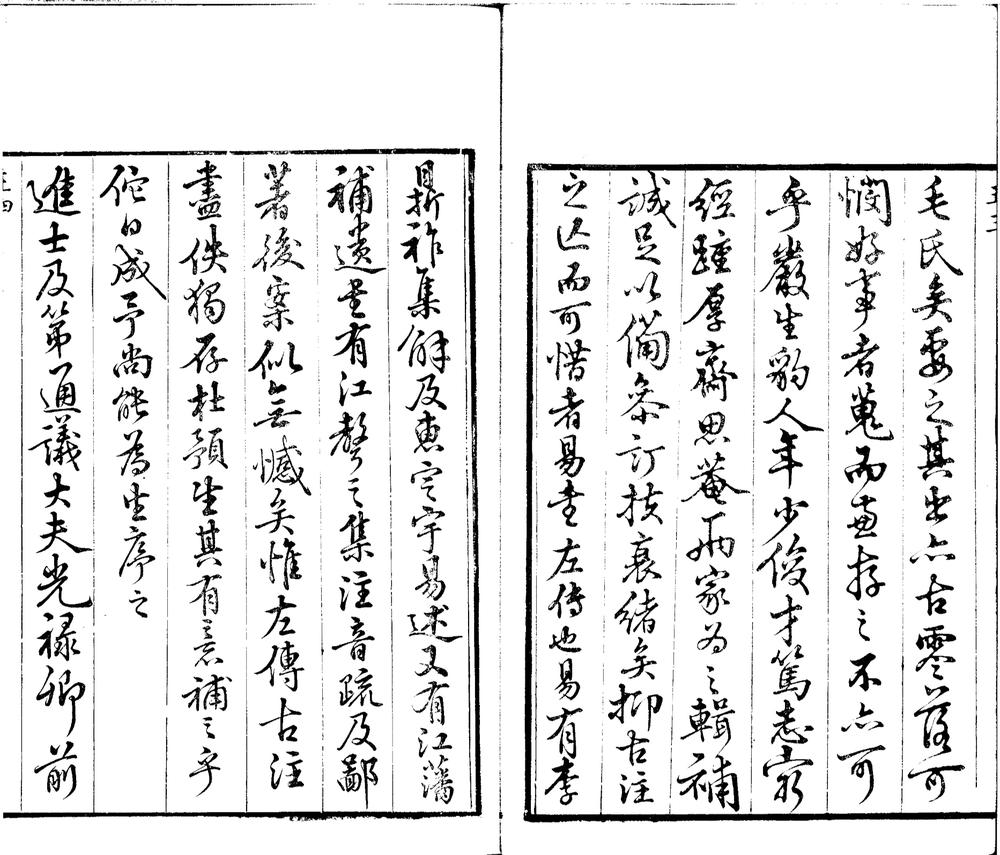 毛氏矣要之其出亦古零落可
憫好事者蒐而兼存之不亦可
乎嚴生豹人年少俊才篤志窮
經踵厚齋思菴兩家為之輯補
誠足以備參訂扶衰緒矣抑古注
之亾而可惜者易書左傳也易有李
鼎祚集解及惠定宇易述又有江藩
補遺書有江聲之集注音疏及鄙
著後案似無憾矣惟左傳古注
盡佚獨存杜預生其有意補之乎
佗日成予尚能為生序之
進士及第通議大夫光祿卿前